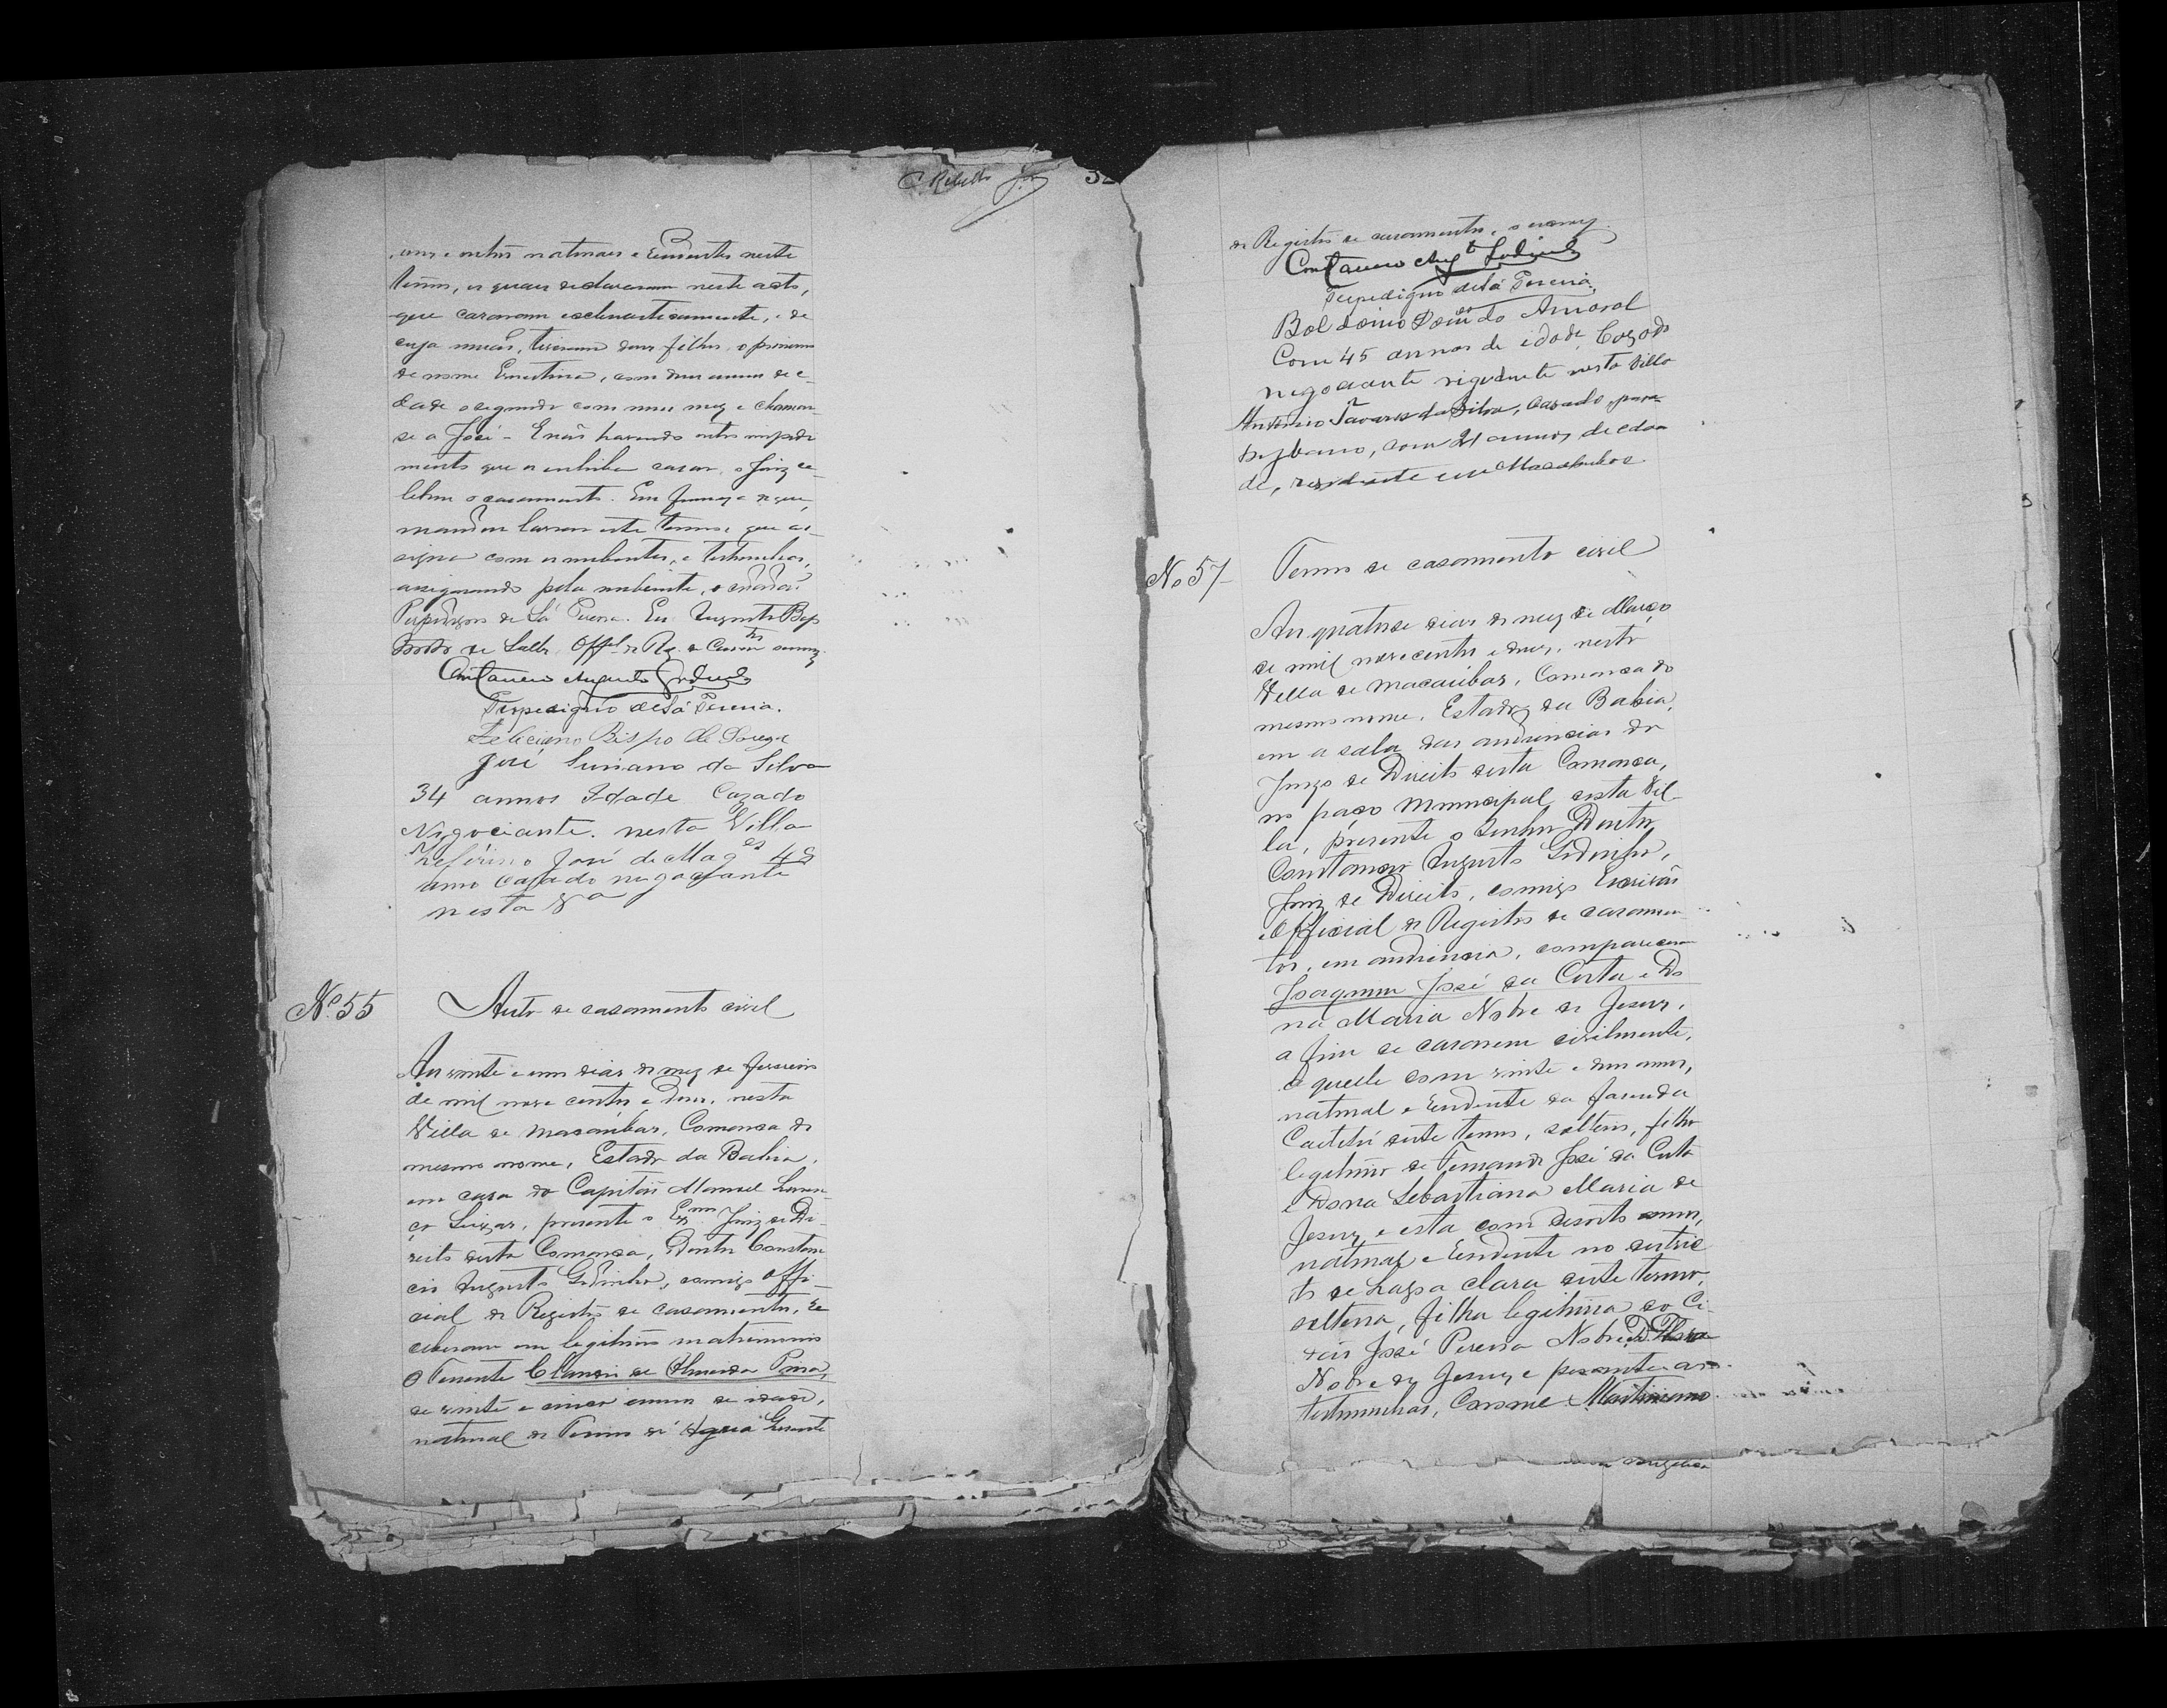 C. Rebello
32
, uns e outros naturaes e residentes neste
termo, os quaes declararam neste acto,
que casaram ecclesiasticamente, e de
cuja união, tiveram dous filhos, o primeiro
de nome Ernestina, com dous annos de e-
dade o segundo com um mez e chaman-
se a José - E não havendo outro impedi
mento que os inhiba casar, o Juiz ce-
lebrou o casamento. Em
mandou lavrar este termo, que as-
signa com os nubentes, e testemunhas,
assignando pela nubente, o cidadão
Perpedigno de Sá Pereira. Eu Augusto
de Offal. do Reg. de
Constancio Augusto Godinho
Perpedigno de Sá Pereira.
Feliciano Bispo de
José Suriano da Silva
34 annos Idade Cazado
Nigociante. nesta Villa
Zeferino José de Mages 48
anno casado negociante
nesta Va
No. 55
Auto de casamento civil
Aos vinte e um dias do mez de Fevereiro
de mil nove centos e dous, nesta
Villa de Macaúbas, Comarca do
mesmo nome, Estado da Bahia,
em casa do Capitão Manoel Louren-
ço , presente o Exmo. Juiz de Di-
reito desta Comarca, Doutor Constan
cio Augusto Godinho, comigo Offi-
cial do Registro de casamentos, re
ceberam em legitimo matrimonio
O Tenente de Almeida
de vinte e cinco annos de idade,
natural do Termo de
do Registro de casamentos, o escrevy.
Constancio Augto Godinho
Perpedigno de Sá Pereira.
Baldoino do Amaral
Com 45 annos de idade Cazado
negociante rigidente nesta Villa
Antonio Tavares da Silva, casado,
com 21 annos de eda
de, residente em Macahubas.
No 57
Termo de casamento civil
Aos quatorse dias do mez de Março
de mil novecentos e dous, nesta
Villa de Macaúbas, Comarca do
mesmo nome, Estado da Bahia,
em a sala das audiencias do
Juizo de Direito desta Comarca,
no paço Municipal desta Vil-
la, presente o Senhor Doutor
Constancio Augusto Godinho,
Juiz de Direito, comigo Escrivão
e Official do Registro de casamen
tos, em audiencia, compareceram
Joaquim José da Costa e Do
na Maria Nobre de Jesus,
a fim de casarem civilmente,
aquelle com vinte e dous annos,
natural e residente na fazenda
Caititú deste termo, solteiro, filho
legitimo de Fernando José da Costa
e Dona Sebastiana Maria de
Jesus, e esta com desoito annos,
natural e residente no distric
to de Lagoa clara deste termo,
solteira, filha legitima do Ci-
José Pereira Nobre e D.
Nobre de Jesus, e perante as
testemunhas, Coronel Martiniano